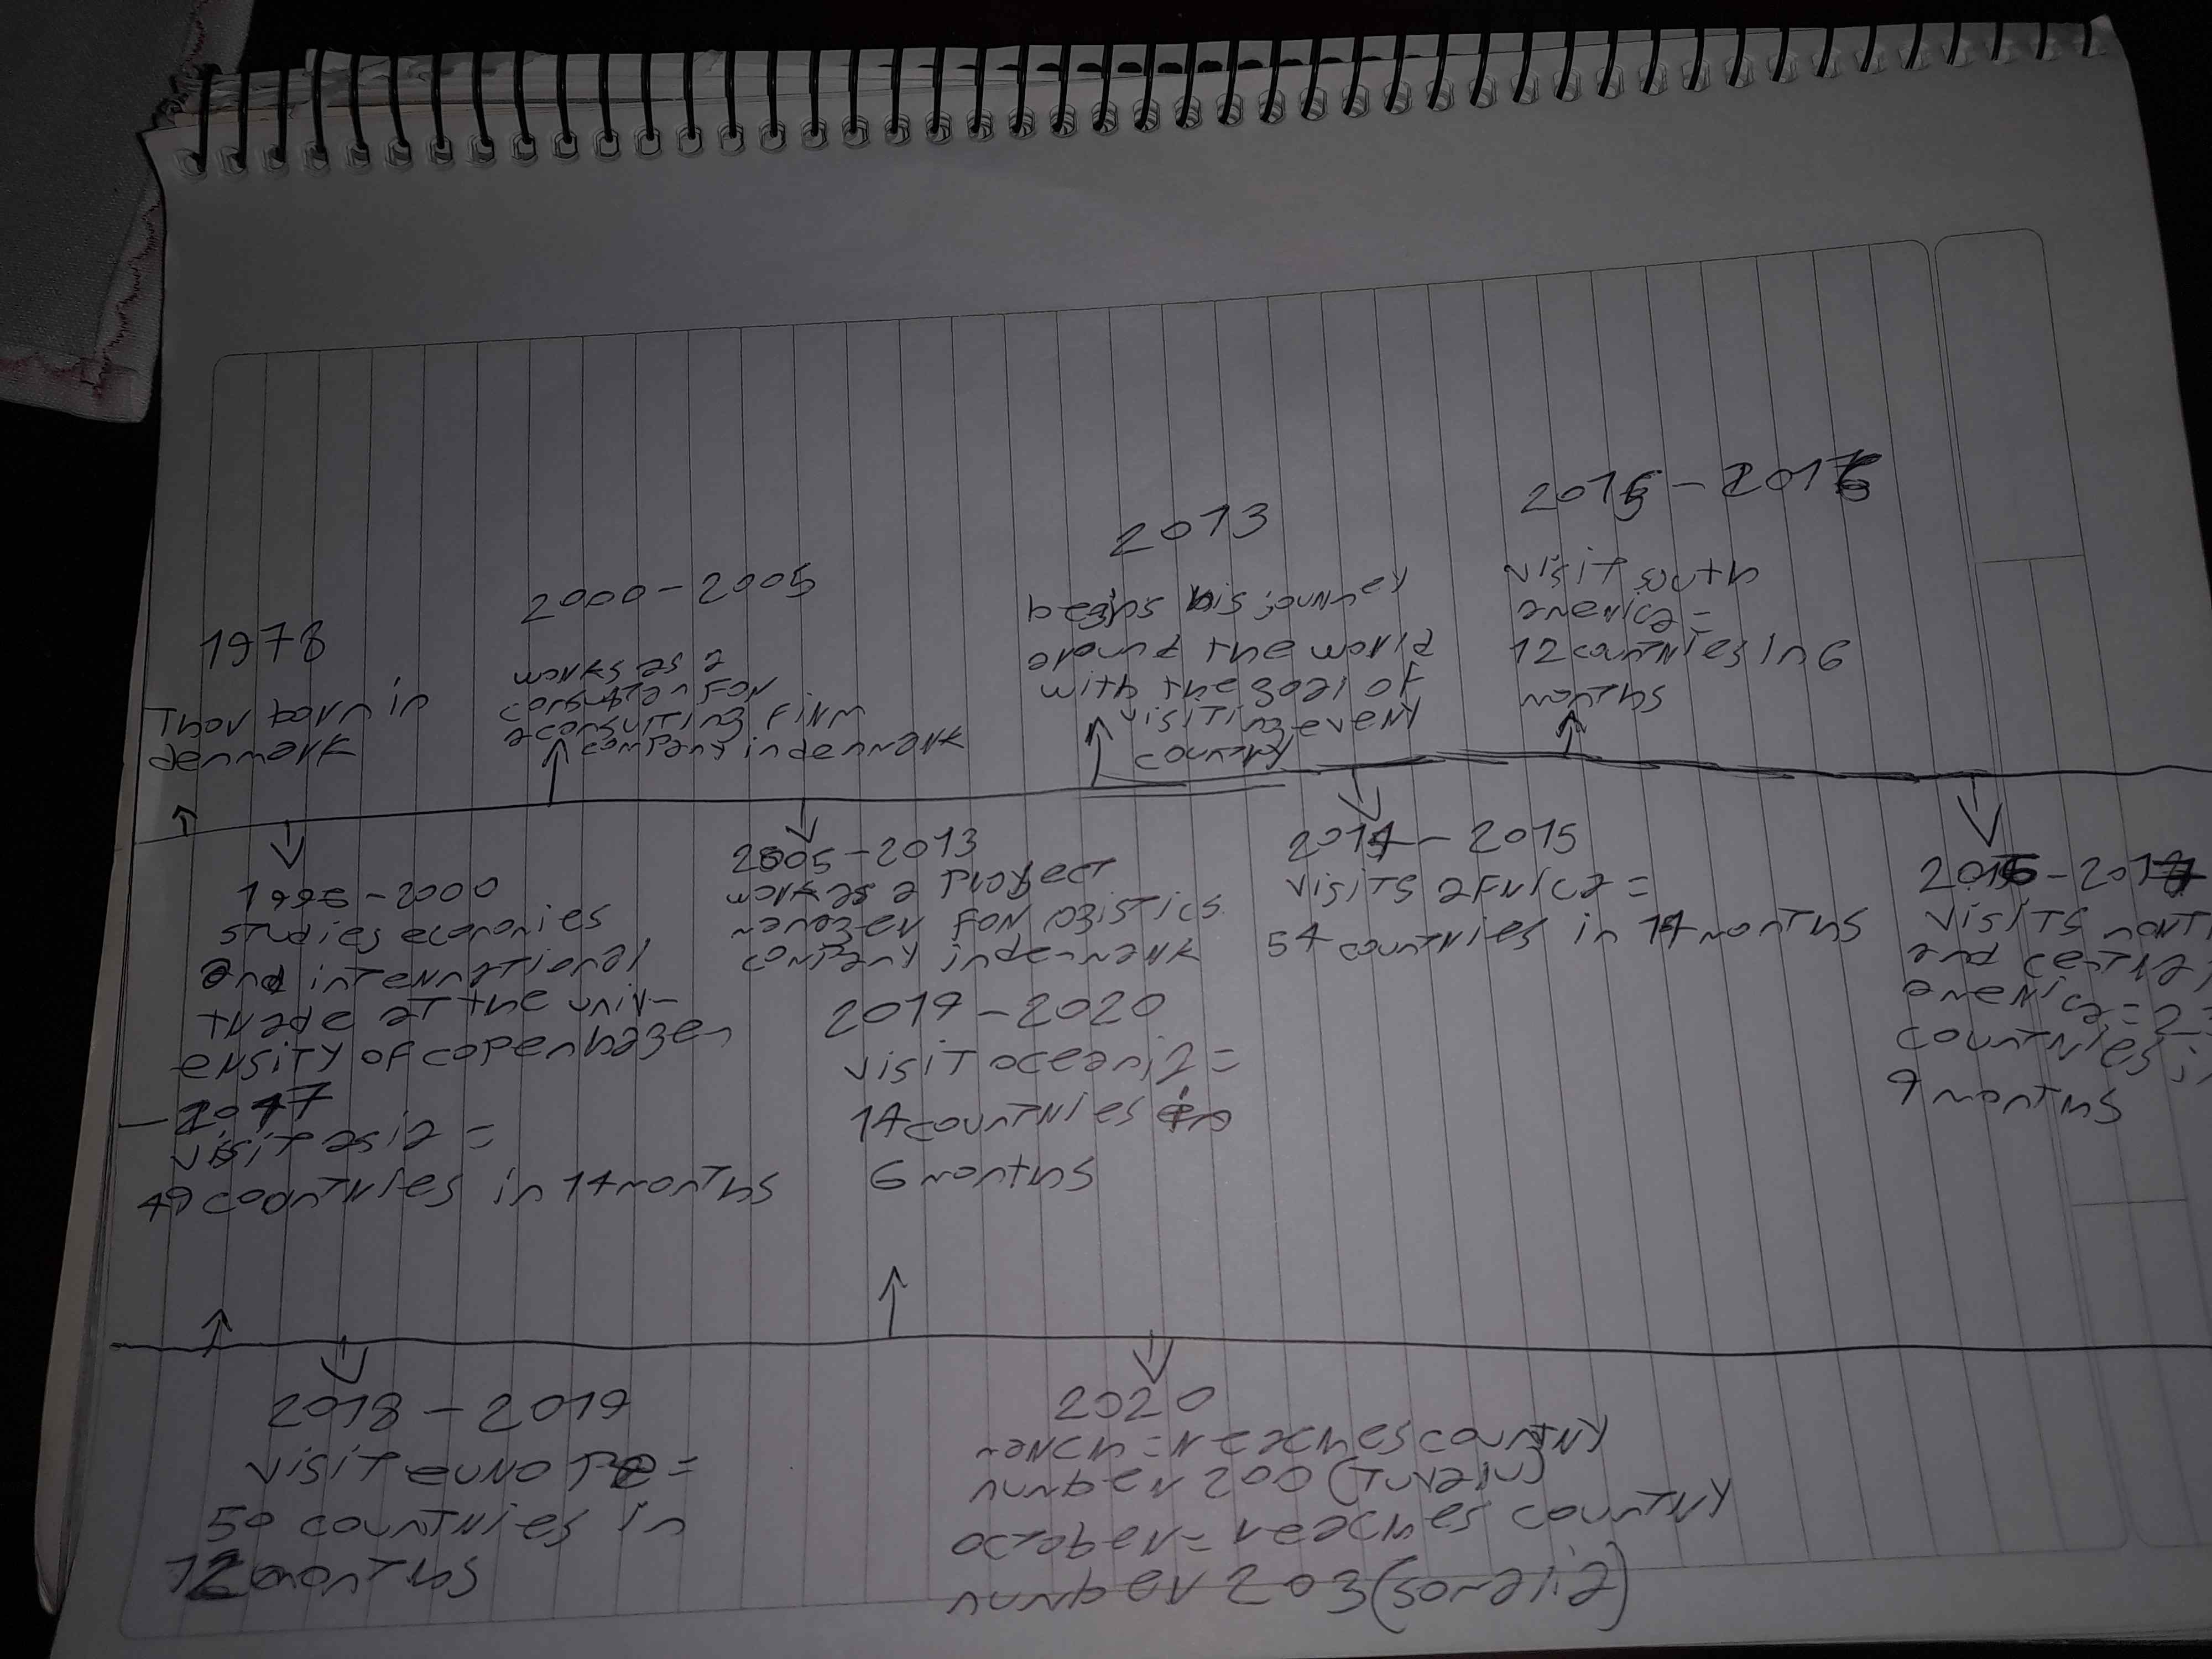 1978
Thor born in
denmark
2000-2005
works as a
for
a consulting firm
company in denmark
2013
begins his journey
around the world
with the goal of
visiting every
country
2015-2016
visit south
america=
12 countries in 6
months
1995-2000
studies economies
and international
trade at the univ-
ersity of copenhagen
2005-2013
work as a project
manager for ogistics
company in denmark
2014-2015
visits africa=
54 countries in 14 months
2016-2017
visits
and
america=
countries
9 months
2017
visit asia=
49 countries in 14 months
2019-2020
visit oceania=
14 countries in
6 months
2018-2019
visit europe=
50 countries in
12 months
2020
march=reaches country
number 200 (Tuvalu)
october=reaches country
number 203 (somalia)